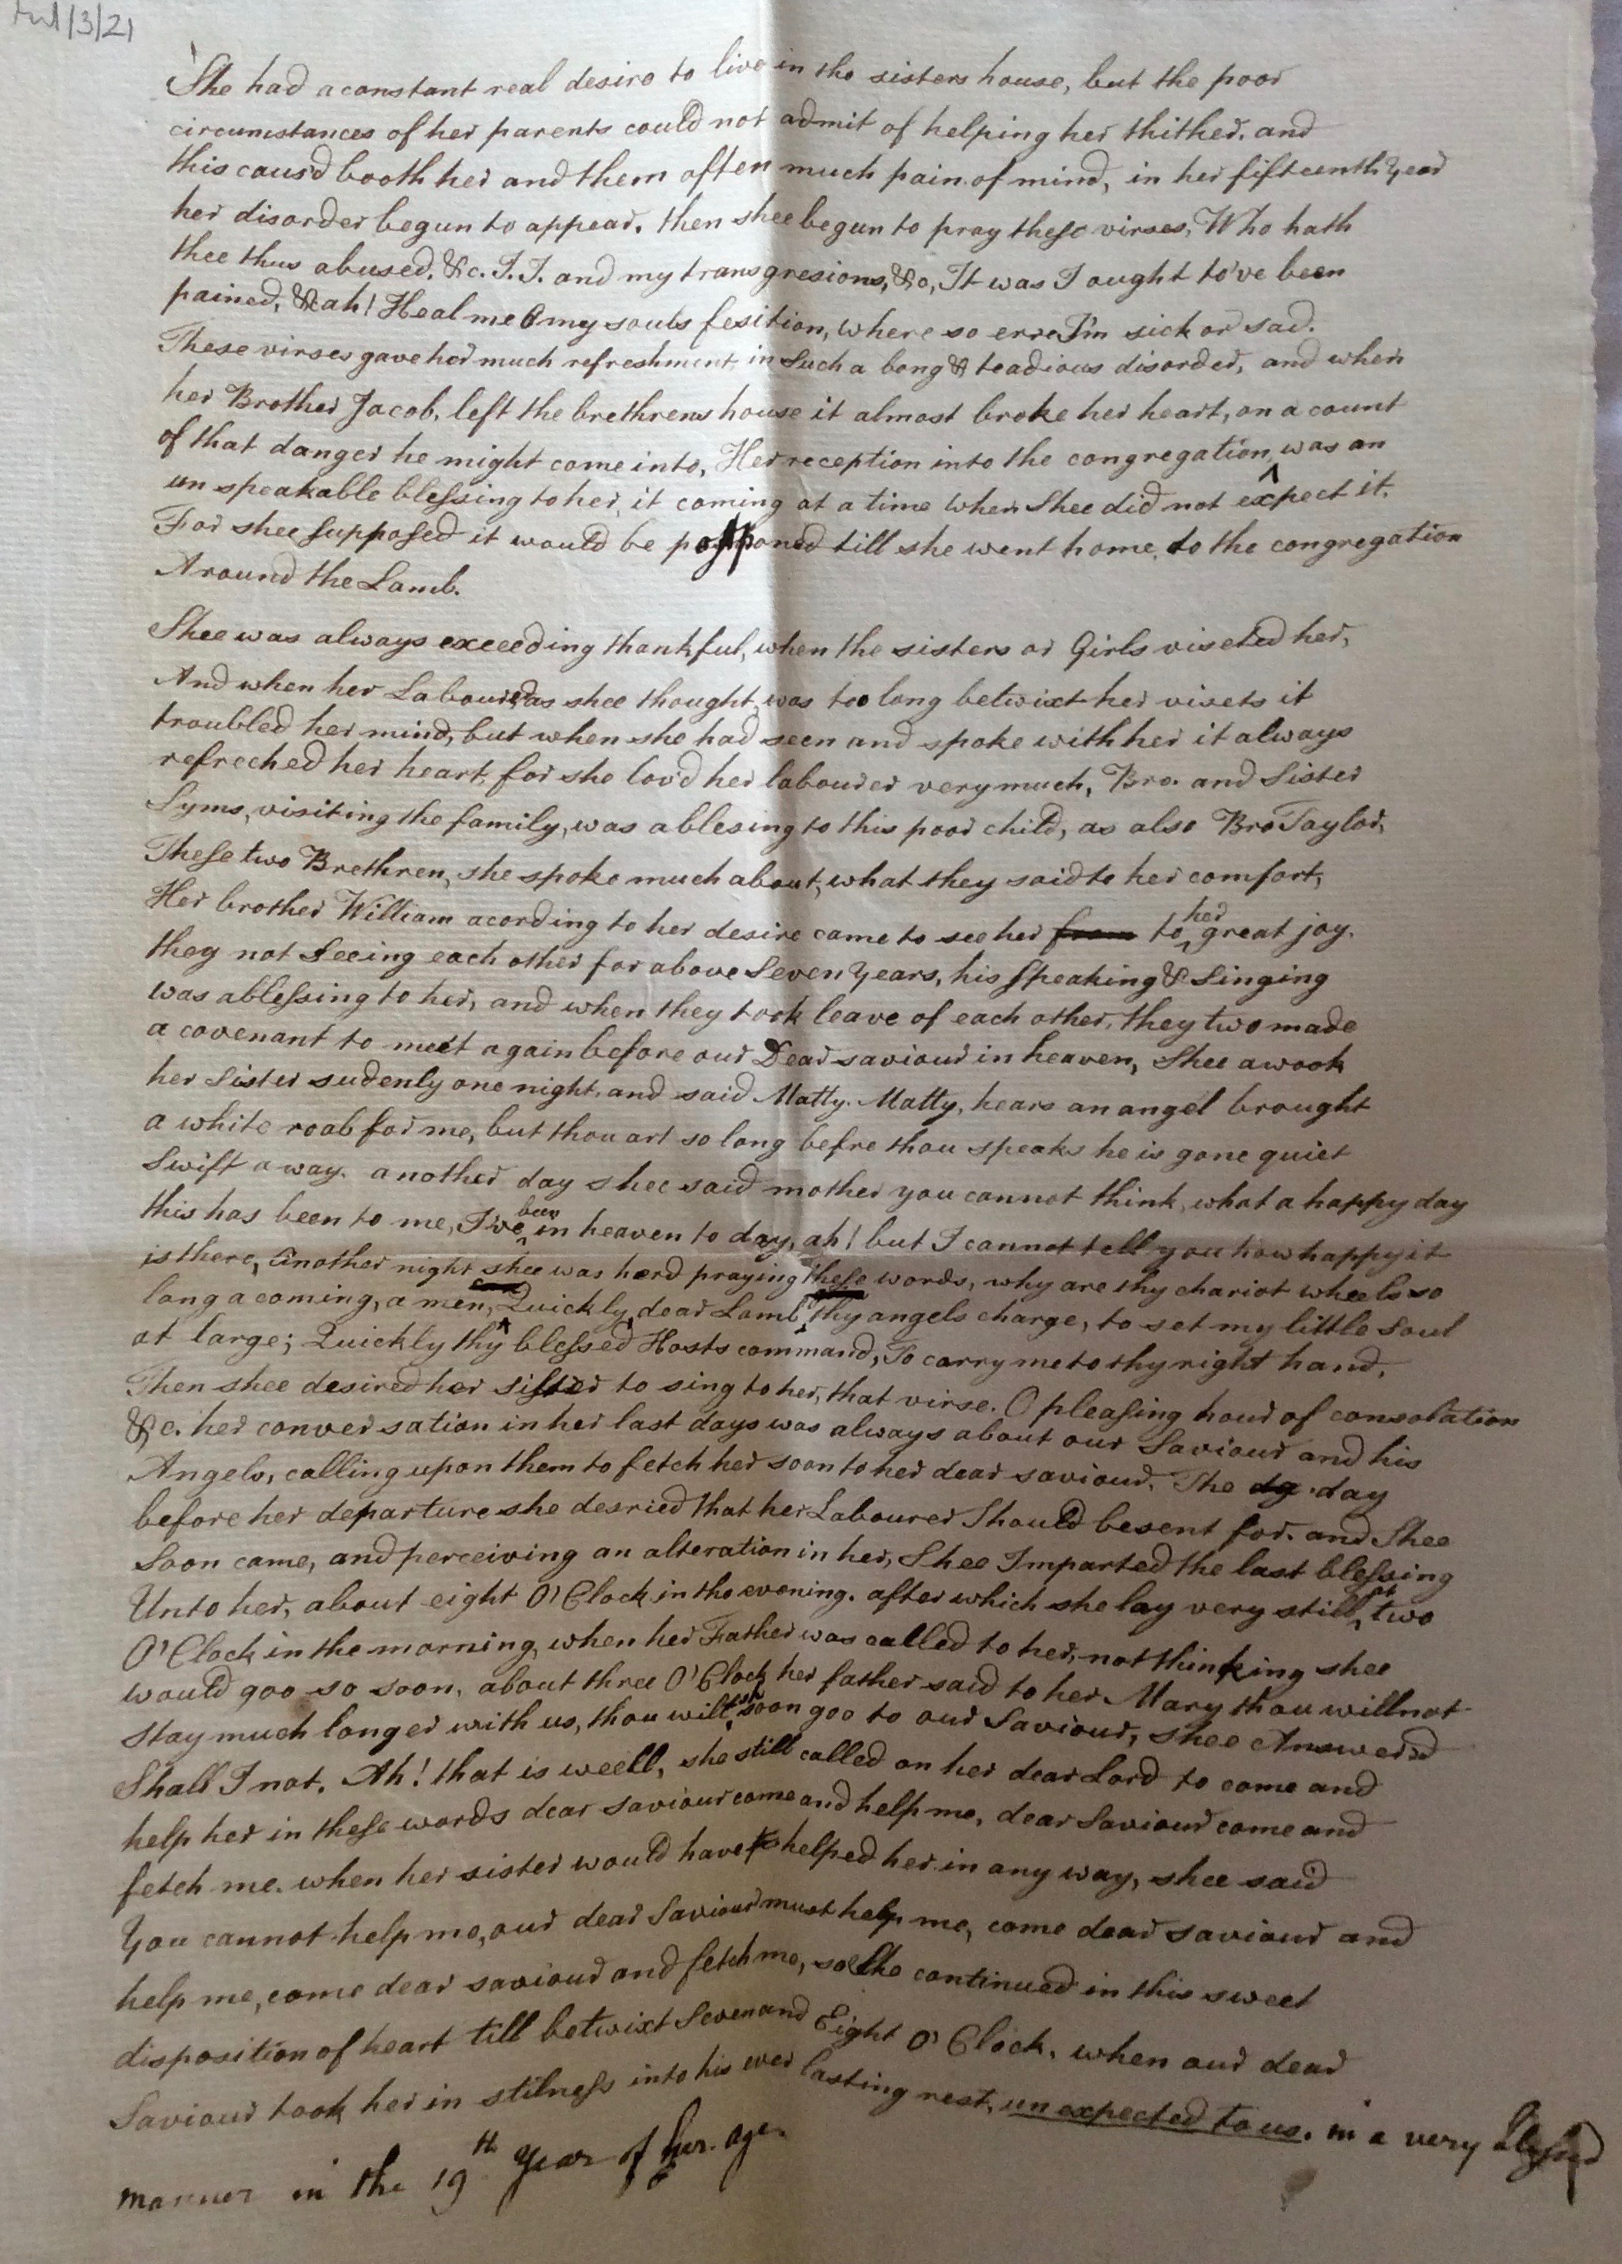 /3/21
She had a constant real desire to live in the sisters house, but the poor
circumstances of her parents could not admit of helping her thither. and
this caus'd booth her and them often much pain of mind, in her fifteenth Year
her disorder begun to appear. then shee begun to pray these virses, Who hath
thee thus abused. &c. I. I. and my transgresions, &c, It was I ought to've been
pained, &c ah! Heal me O my souls fesition, where so erre I'm sick or sad.
These virses gave her much refreshment in Such a long & teadious disorder, and when
her Brother Jacob, left the brethrens house it almost broke her heart, on a count
of that danger he might come into, Her reception into the congregation, was an
un speakable blessing to her, it coming at a time when Shee did not expect it.
For shee supposed it would be postponed till she went home to the congregation
Around the Lamb.
Shee was always exceeding thankful, when the sisters or Girls viseted her,
And when her Labourer as shee thought, was too long betwixt her visets it
troubled her mind, but when she had seen and spoke with her it always
refreched her heart, for she lov'd her labourer very much, Bro. and Sister
Syms, visiting the family, was a blesing to this poor child, as also Bro Taylor,
These two Brethren, she spoke much about, what they said to her comfort,
Her brother William acording to her desire came to see her from to her great joy.
they not Seeing each other for above Seven Years, his Speaking & Singing
was a blessing to her, and when they took leave of each other, they two made
a covenant to meet again before our Dear saviour in heaven, Shee awook
her Sister sudenly one night, and said Matty. Matty, hears an angel brought
a white roab for me, but thou art so long befre thou speaks he is gone quiet
Swift a way. another day shee said mother you cannot think, what a happy day
this has been to me, I've been in heaven to day, ah! but I cannot tell you how happy it
is there, another night shee was herd praying these words, why are thy chariot wheels so
long a coming, a men, Quickly, dear Lamb, thy angels charge, to set my little Soul
at large; Quickly thy blessed Hosts command, To carry me to thy right hand,
Then shee desired her sister to sing to her, that virse. O pleasing hour of consolation
&c. her conversation in her last days was always about our Saviour and his
Angels, calling upon them to fetch her soon to her dear saviour. The dg day
before her departure she desried that her Labourer Should be sent for. and Shee
Soon came, and perceiving an alteration in her, Shee Imparted the last blessing
Unto her, about eight O'Clock in the evening. after which she lay very still, at two
O'Clock in the morning, when her Father was called to her, not thinking shee
would goo so soon. about three O'Clock her father said to her Mary thou will not
stay much longer with us, thou wilt soon goo to our Saviour, shee Answered
Shall I not. Ah! that is weell, she still called on her dear Lord to come and
help her in these words dear saviour come and help me, dear Saviour come and
fetch me. when her sister would have helped her in any way, shee said
You cannot help me, our dear Saviour must help me, come dear saviour and
help me, come dear saviour and fetch me, so she continued in this sweet
disposition of heart till betwixt Seven and Eight O'Clock, when our dear
Saviour took her in stilness into his ever lasting rest, un expected to us. in a very blessed
manner in the 19th Year of her age.